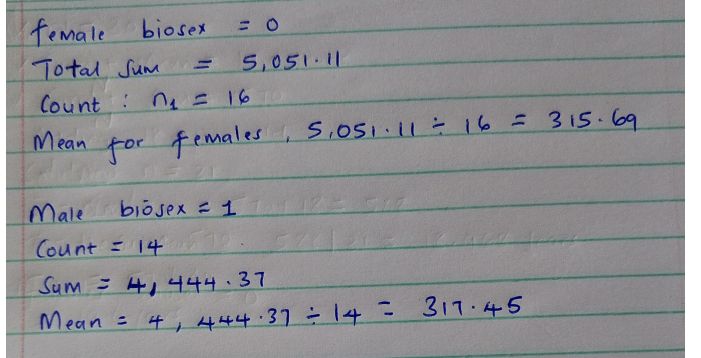 female biosex = 0
Total Sum = 5,051.11
Count : n1 = 16
Mean for females, 5,051.11 ÷ 16 = 315.69
Male biosex = 1
Count = 14
Sum = 4,444.37
Mean = 4,444.37 ÷ 14 = 317.45